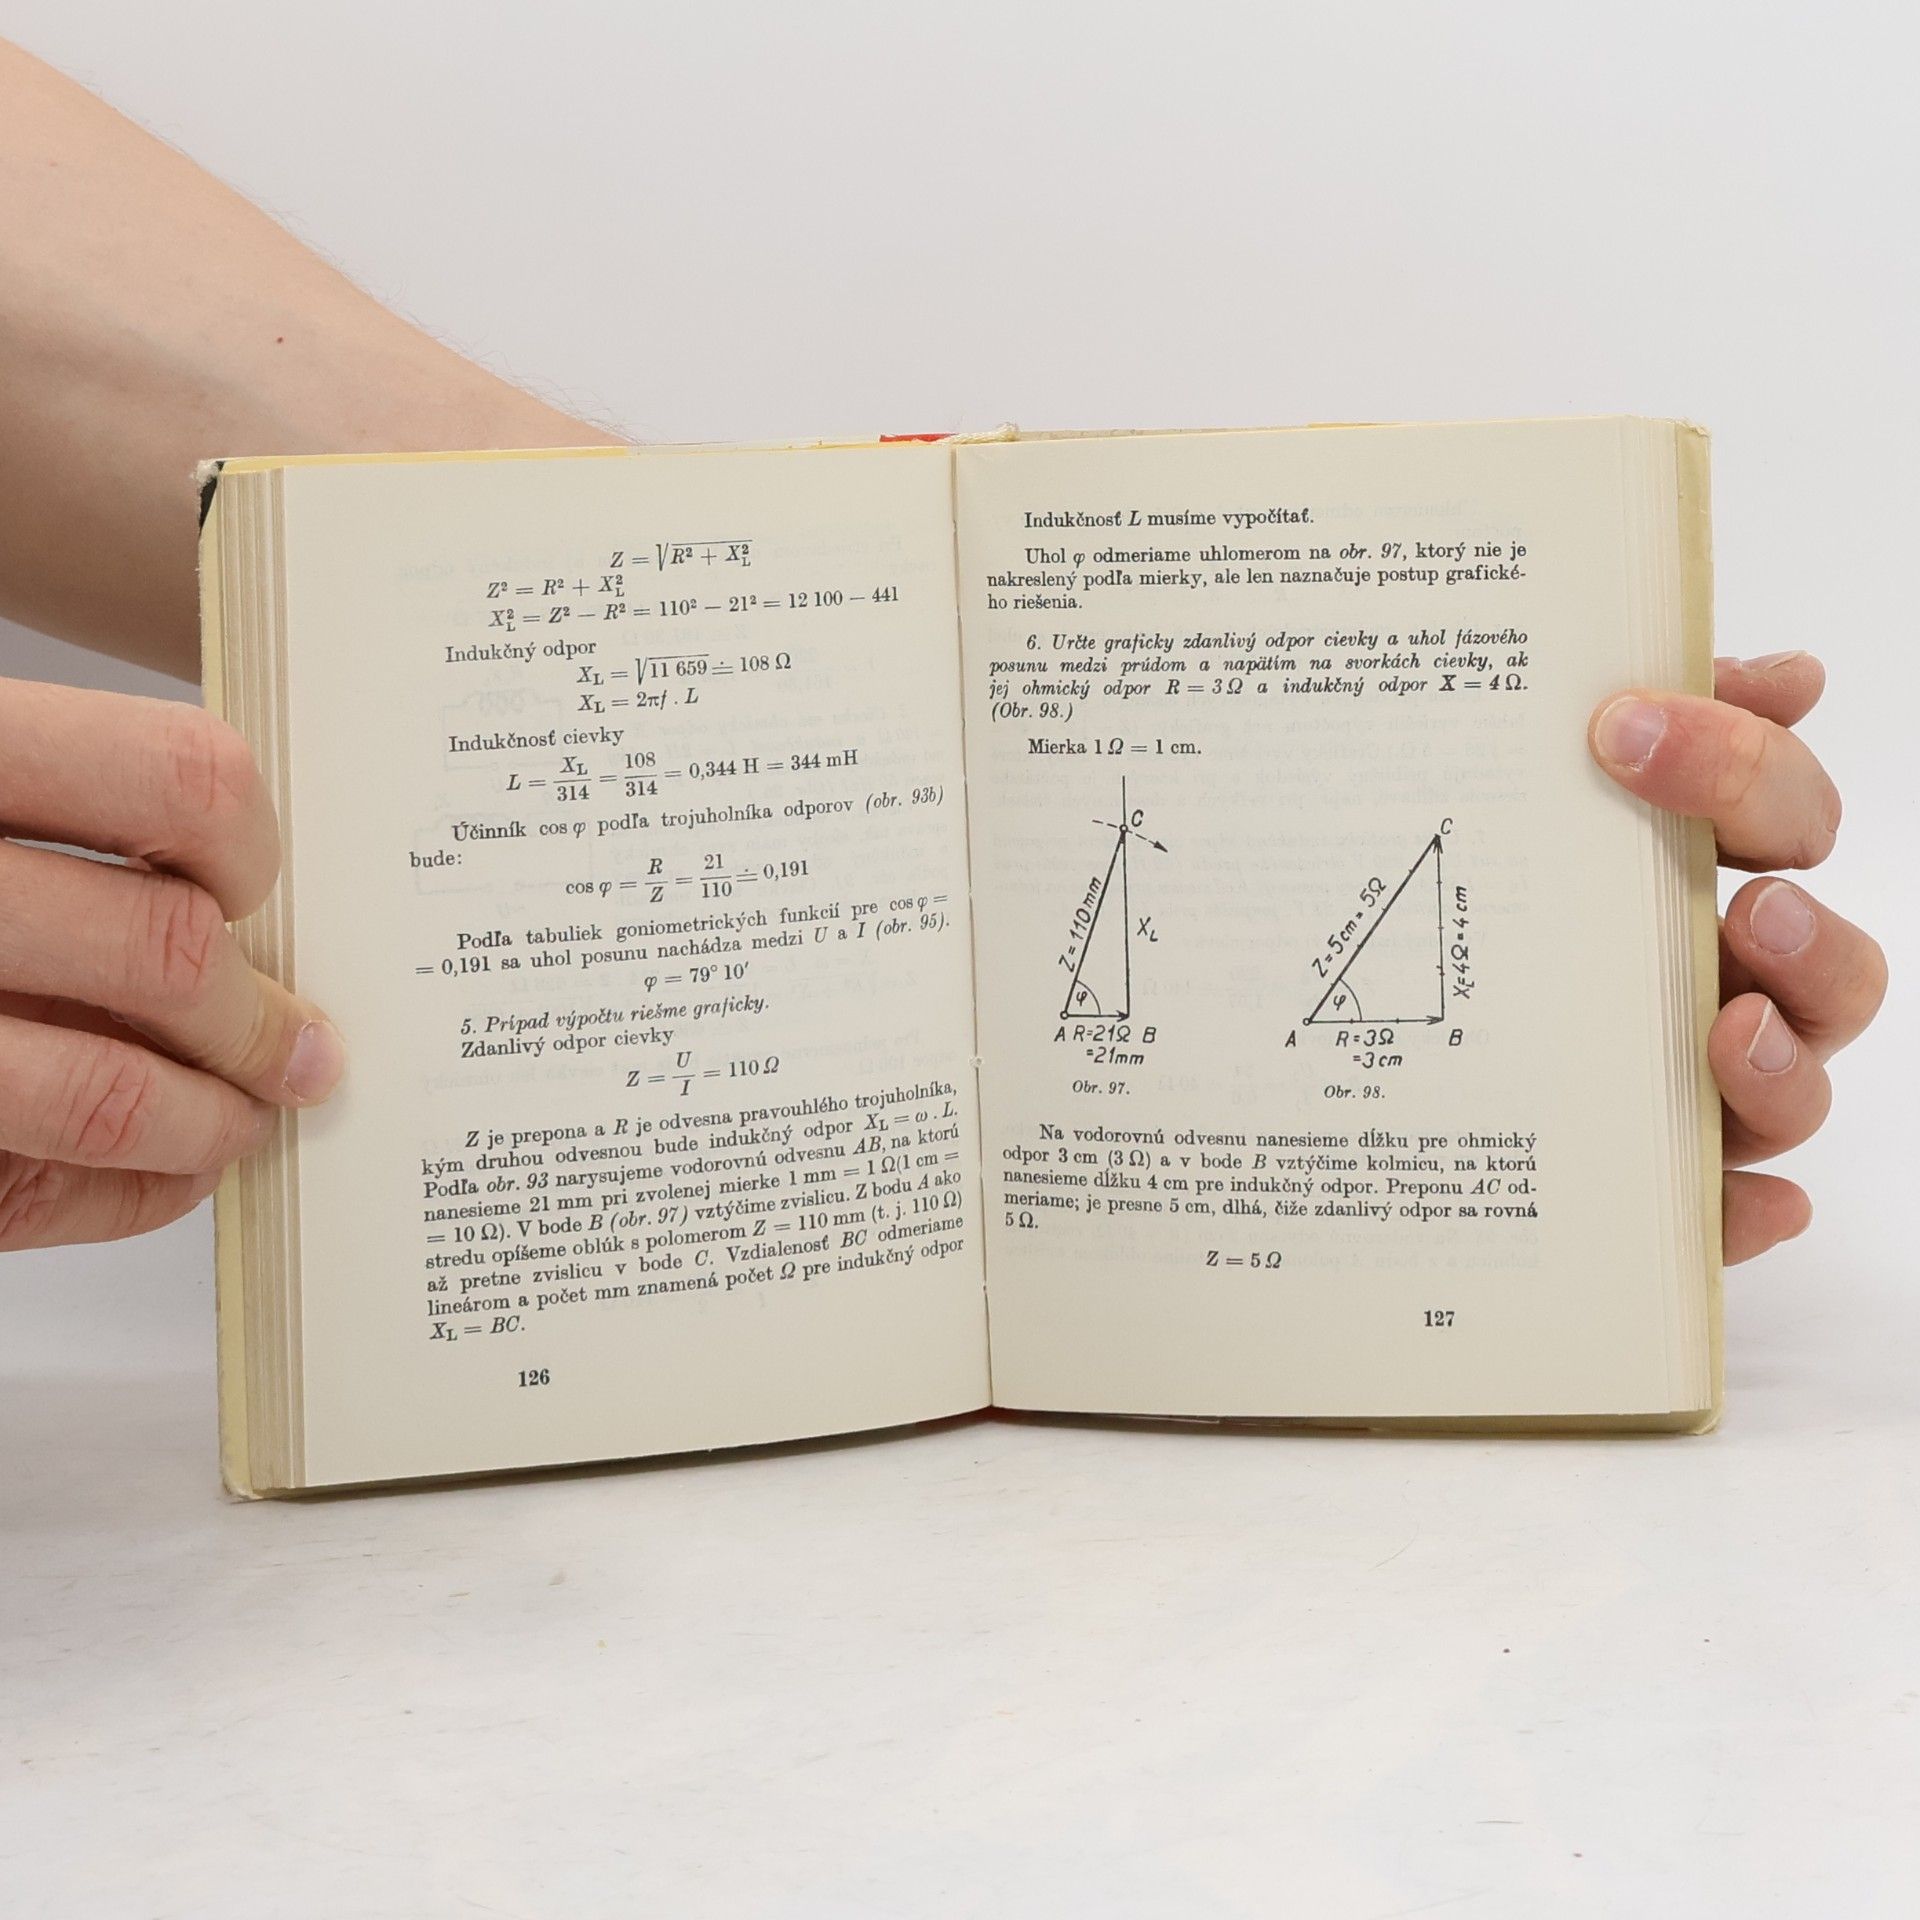 Z = √R² + X²L
Z² = R² + X²L
X²L = Z² — R² = 110² — 21² = 12 100 — 441
Indukčný odpor
XL = √11 659 ≐ 108 Ω
XL = 2πf . L
Indukčnosť cievky
L = XL/314 = 108/314 = 0,344 H = 344 mH
Účinník cos φ podľa trojuholníka odporov (obr. 93b)
bude:
cos φ = R/Z = 21/110 ≐ 0,191
Podľa tabuliek goniometrických funkcií pre cos φ =
= 0,191 sa uhol posunu nachádza medzi U a I (obr. 95).
φ = 79° 10′
5. Prípad výpočtu riešme graficky.
Zdanlivý odpor cievky
Z = U/I = 110 Ω
Z je prepona a R je odvesna pravouhlého trojuholníka,
kým druhou odvesnou bude indukčný odpor XL = ω . L.
Podľa obr. 93 narysujeme vodorovnú odvesnu AB, na ktorú
nanesieme 21 mm pri zvolenej mierke 1 mm = 1 Ω(1 cm =
= 10 Ω). V bode B (obr. 97) vztýčime zvislicu. Z bodu A ako
stredu opíšeme oblúk s polomerom Z = 110 mm (t. j. 110 Ω)
až pretne zvislicu v bode C. Vzdialenosť BC odmeriame
lineárom a počet mm znamená počet Ω pre indukčný odpor
XL = BC.
126
Indukčnosť L musíme vypočítať.
Uhol φ odmeriame uhlomerom na obr. 97, ktorý nie je
nakreslený podľa mierky, ale len naznačuje postup grafické-
ho riešenia.
6. Určte graficky zdanlivý odpor cievky a uhol fázového
posunu medzi prúdom a napätím na svorkách cievky, ak
jej ohmický odpor R = 3 Ω a indukčný odpor X = 4 Ω.
(Obr. 98.)
Mierka 1 Ω = 1 cm.
C
Z = 110 mm
XL
φ
A R=21Ω B
=21mm
Obr. 97.
C
Z=5cm=5Ω
XL=4Ω=4 cm
φ
A R=3Ω B
=3cm
Obr. 98.
Na vodorovnú odvesnu nanesieme dĺžku pre ohmický
odpor 3 cm (3 Ω) a v bode B vztýčime kolmicu, na ktorú
nanesieme dĺžku 4 cm pre indukčný odpor. Preponu AC od-
meriame; je presne 5 cm, dlhá, čiže zdanlivý odpor sa rovná
5 Ω.
Z = 5 Ω
127